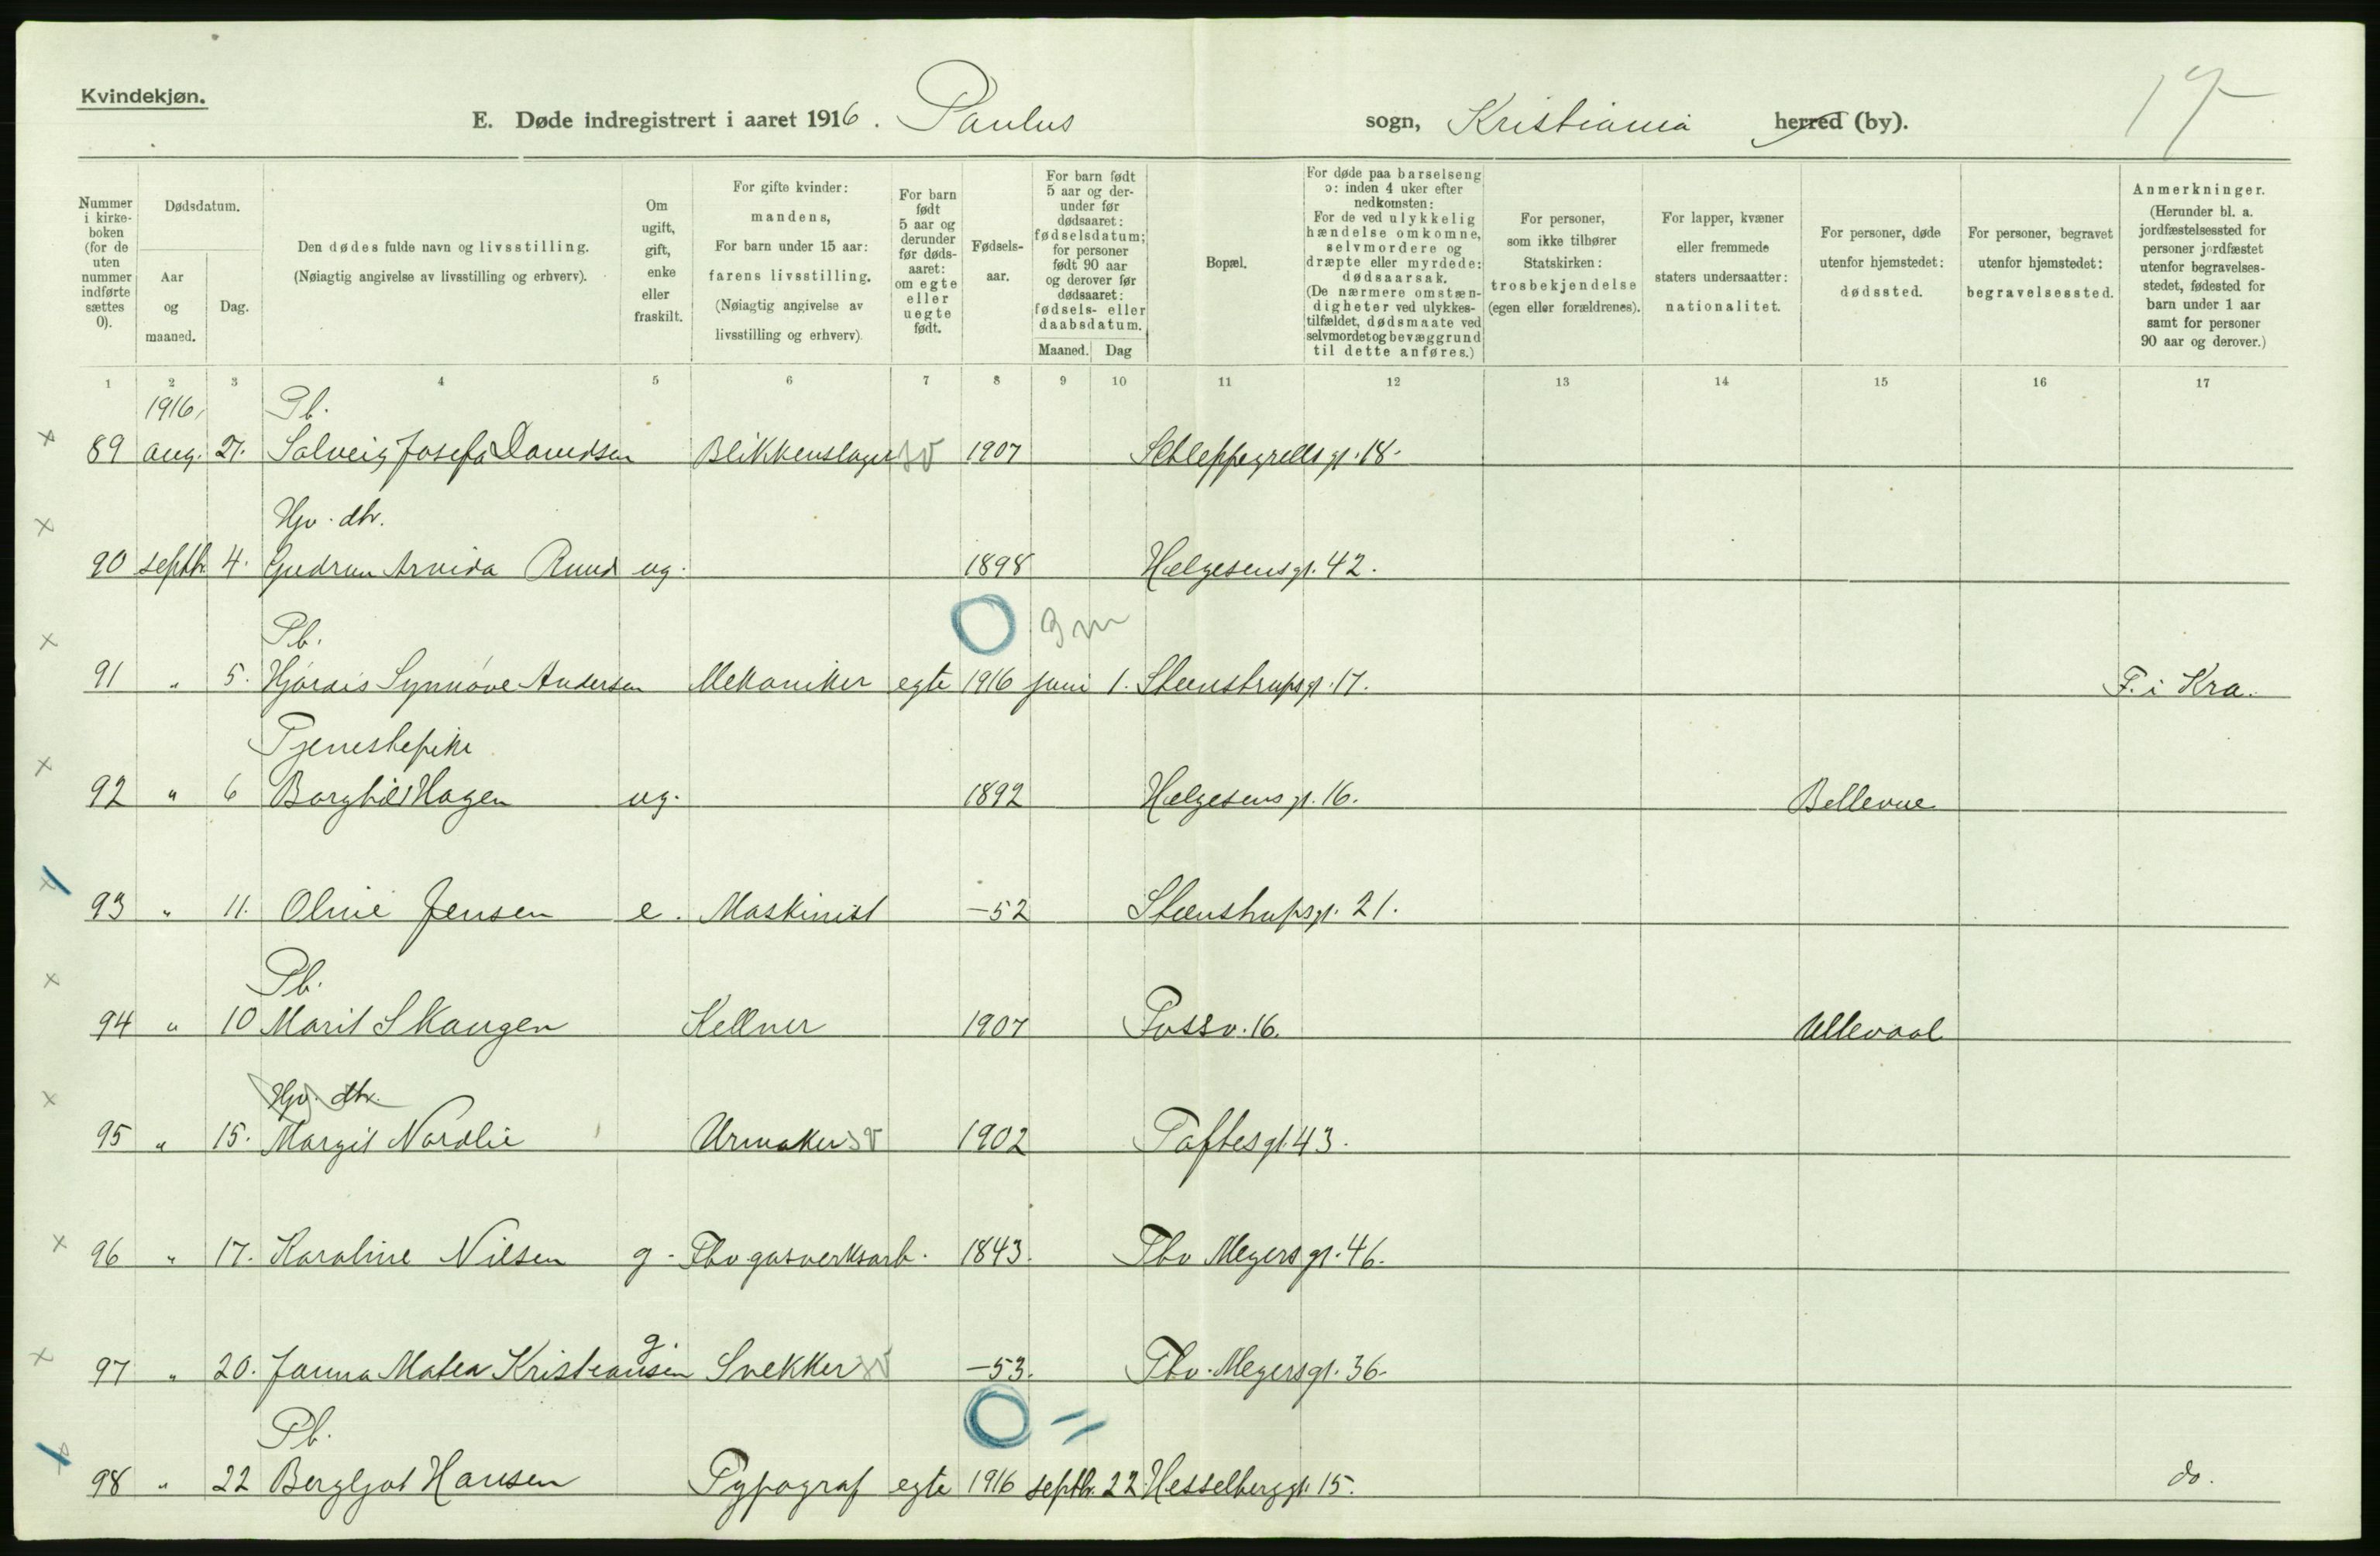 Kvindekjøn.
E. Døde indregistrert i aaret 1916. Paulus sogn, Kristiania herred (by). 17
Nummer i kirkeboken (for de uten nummer indførte sættes 0).
Dødsdatum.
Aar og maaned.
Dag.
Den dødes fulde navn og livsstilling.
(Nøiagtig angivelse av livsstilling og erhverv).
Om ugift, gift, enke eller fraskilt.
For gifte kvinder: mandens, For barn under 15 aar: farens livsstilling. (Nøiagtig angivelse av livsstilling og erhverv).
For barn født 5 aar og derunder før dødsaaret: om egte eller uegte født.
Fødselsaar.
For barn født 5 aar og derunder før dødsaaret: fødselsdatum; for personer født 90 aar og derover før dødsaaret: fødsels- eller daabsdatum.
Maaned. Dag
Bopæl.
For døde paa barselseng ɔ: inden 4 uker efter nedkomsten: For de ved ulykkelig hændelse omkomne, selvmordere og dræpte eller myrdede: dødsaarsak. (De nærmere omstændigheter ved ulykkestilfældet, dødsmaate ved selvmordet og bevæggrund til dette anføres.)
For personer, som ikke tilhører Statskirken: trosbekjendelse (egen eller forældrenes).
For lapper, kvæner eller fremmede staters undersaatter: nationalitet.
For personer, døde utenfor hjemstedet: dødssted.
For personer, begravet utenfor hjemstedet: begravelsessted.
Anmerkninger. (Herunder bl. a. jordfæstelsessted for personer jordfæstet utenfor begravelsesstedet, fødested for barn under 1 aar samt for personer 90 aar og derover.)
1 2 3 4 5 6 7 8 9 10 11 12 13 14 15 16 17
1916, Pb.
89 aug. 27. Solveig Josefa Davidsen Blikkenslager sv 1907 Schleppegrells gt. 18.
Hjv. dtr.
90 septbr 4. Gudrun Arvida Ruud ug. 1898 Helgesens gt. 42.
Pb. 0 3 m
91 " 5. Hjördis Synnöve Andersen Mekaniker egte 1916 juni 1. Steenstrups gt. 17. F. i Kra.
Tjenestepike
92 " 6 Borghild Hagen ug. 1892 Helgesens gt. 16. Bellevue
93 " 11. Oline Jensen e. Maskinist -52 Steenstrups gt. 21.
Pb.
94 " 10 Marit Skaugen Kellner 1907 Fossv. 16. Ullevaal
Hjv. dtr.
95 " 15. Margit Nordlie Urmaker sv 1902 Toftes gt. 43.
96 " 17. Karoline Nilsen g. Fhv gasverksarb. 1843. Thv Meyers gt. 46.
97 " 20. Janna Matea Kristiansen g. Snekker sv -53. Thv. Meyers gt. 36.
Pb. 0 =
98 " 22 Bergljot Hansen Typograf egte 1916 septbr. 22 Hesselberg gt. 15. do.